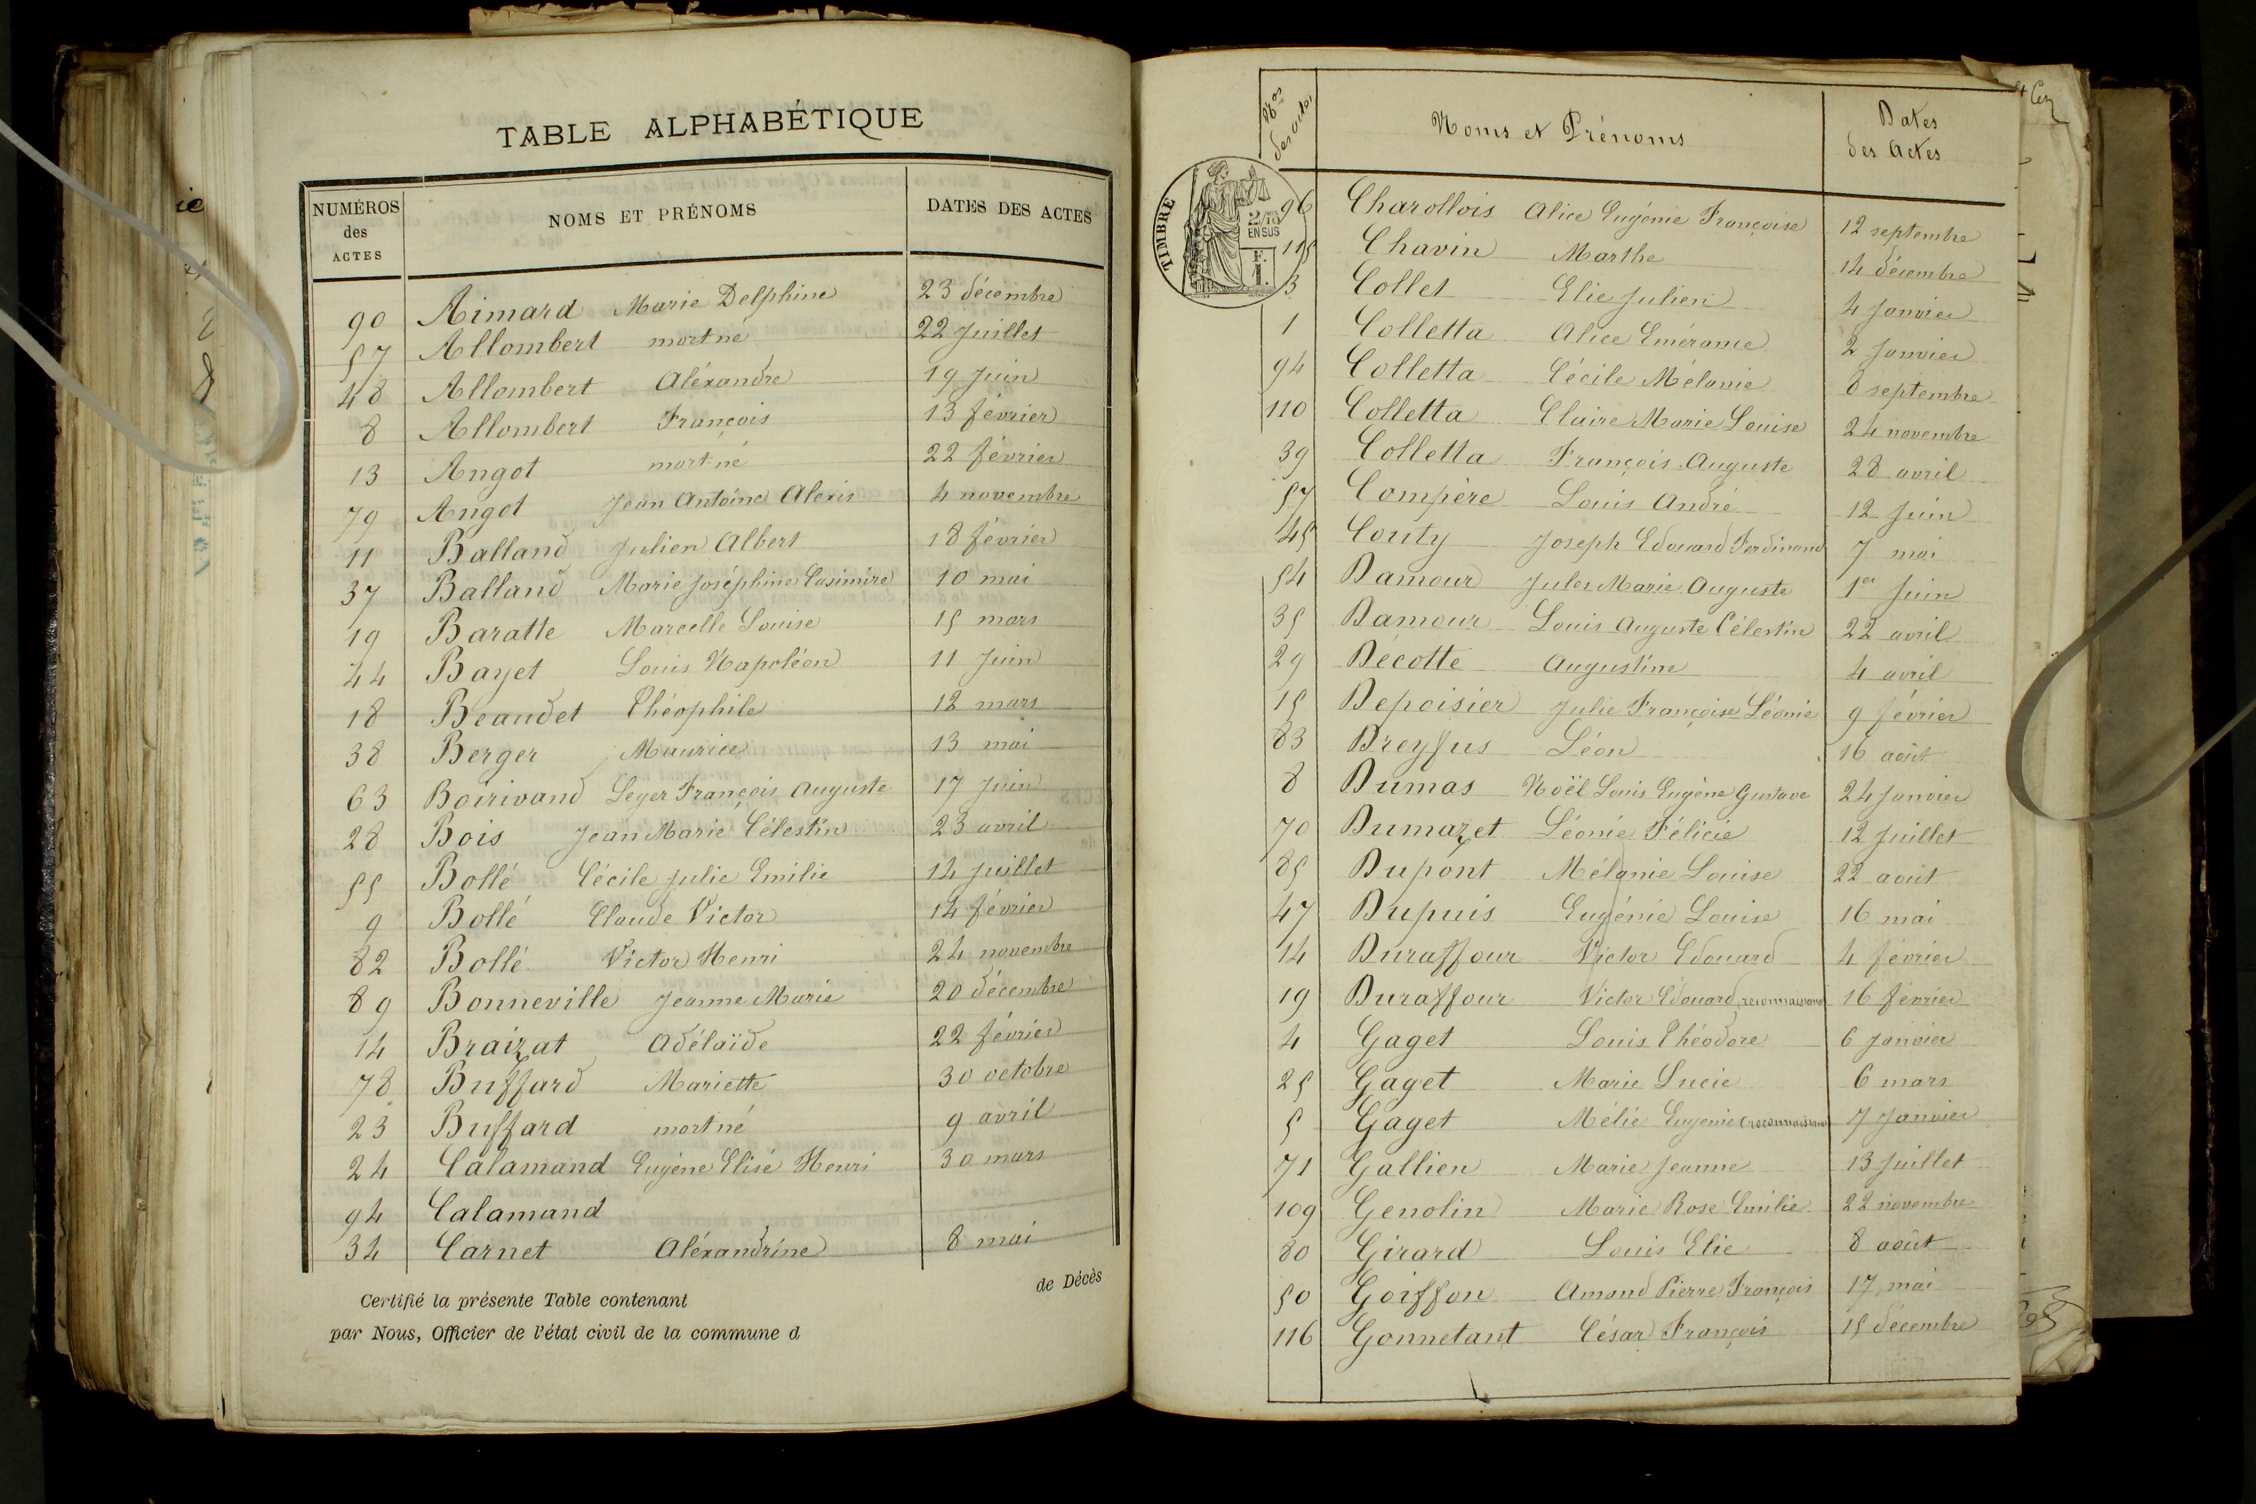 TABLE ALPHABÉTIQUE
NUMÉROS des ACTES NOMS ET PRÉNOMS DATES DES ACTES
90 Aimard Marie Delphine 23 décembre
57 Allombert mort né 22 Juillet
48 Allombert Aléxandre 19 Juin
8 Allombert François 13 février
13 Angot mort né 22 février
79 Angot Jean Antoine Alexis 4 novembre
11 Balland Julien Albert 18 février
37 Balland Marie Joséphine Casimire 10 mai
19 Baratte Marcelle Louise 15 mars
44 Bayet Louis Napoléon 11 Juin
18 Beaudet Théophile 12 mars
38 Berger Maurice 13 mai
63 Boirivand Leger François Auguste 17 Juin
28 Bois Jean Marie Célestin 23 avril
55 Bollé Cécile Julie Emilie 14 Juillet
9 Bollé Claude Victor 14 février
82 Bollé Victor Henri 24 novembre
89 Bonneville Jeanne Marie 20 décembre
14 Braizat Adélaïde 22 février
78 Buffard Mariette 30 octobre
23 Buffard mort né 9 avril
24 Calamand Eugène Elisé Henri 30 mars
94 Calamand
34 Carnet Aléxandrine 8 mai
Certifié la présente Table contenant de Décès
par Nous, Officier de l'état civil de la commune d
Nos des actes Noms et Prénoms Dates des Actes
TIMBRE
2/10 EN SUS
F. 1.
96 Charollois Alice Eugénie Françoise 12 septembre
115 Chavin Marthe 14 décembre
3 Collet Elie Julien 4 Janvier
1 Colletta Alice Emérance 2 Janvier
94 Colletta Cécile Mélanie 8 septembre
110 Colletta Claire Marie Louise 24 novembre
39 Colletta François Auguste 28 avril
57 Compère Louis André 12 Juin
45 Couty Joseph Edouard Ferdinand 7 mai
54 Damour Jules Marie Auguste 1er Juin
35 Damour Louis Auguste Célestin 22 avril
29 Décotte Augustine 4 avril
15 Depoisier Julie Françoise Léonie 9 février
83 Dreyfus Léon 16 août
8 Dumas Noël Louis Eugène Gustave 24 Janvier
70 Dumazet Léonie Félicie 12 Juillet
85 Dupont Mélanie Louise 22 août
47 Dupuis Eugénie Louise 16 mai
14 Duraffour Victor Edouard 4 février
19 Duraffour Victor Edouard reconnaissance 16 février
4 Gaget Louis Théodore 6 Janvier
25 Gaget Marie Lucie 6 mars
5 Gaget Mélie Eugénie (reconnaissance 7 Janvier
71 Gallien Marie Jeanne 13 Juillet
109 Genolin Marie Rose Emilie 22 novembre
80 Girard Louis Elie 8 août
50 Goiffon Amand Pierre François 17 mai
116 Gonnetant César François 15 décembre